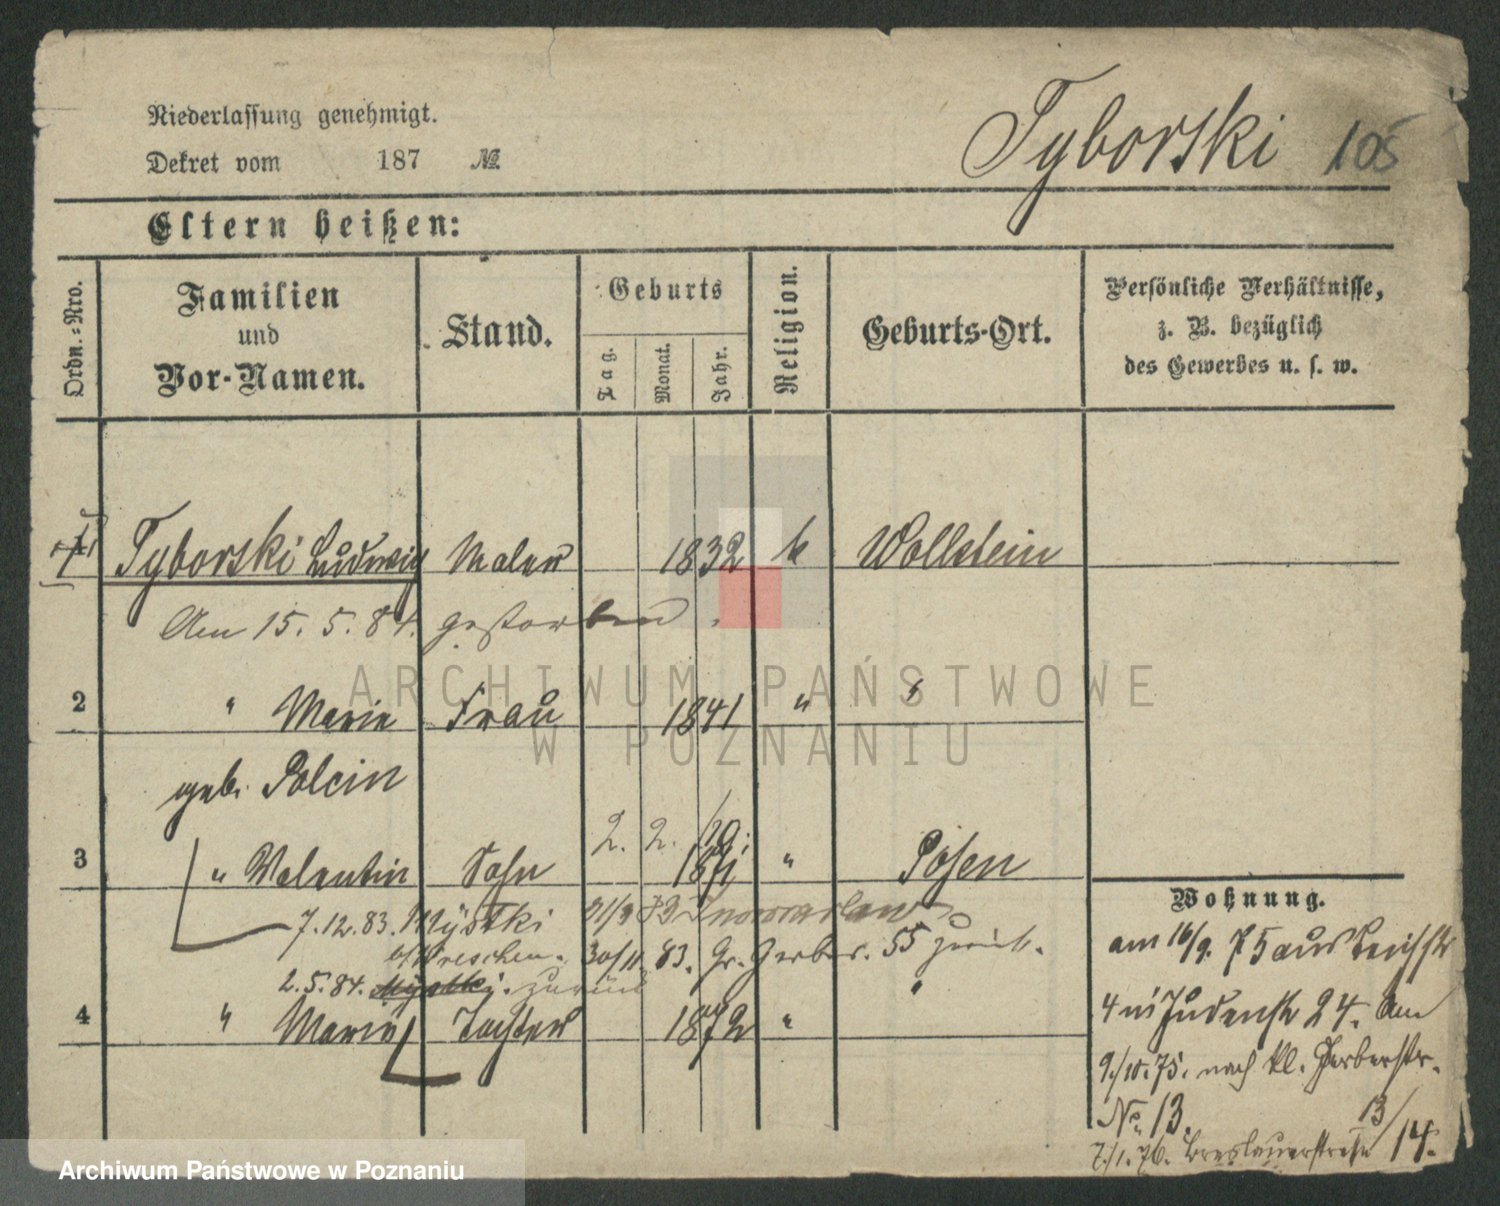 Niederlassung genehmigt.
Dekret vom 187 №
Tyborski 105
Eltern heißen:
Ordn.-Nro.
Familien und Vor-Namen.
Stand.
Geburts
Tag. Monat. Jahr.
Religion.
Geburts-Ort.
Persönliche Verhältnisse,
z. B. bezüglich
des Gewerbes u. s. w.
1 Tyborski Ludwig Maler 1832 k Wollstein
Am 15. 5. 84. gestorben.
2 " Marie Frau 1841 " "
geb. Polcin
2. 2. 70;
3 " Valentin Sohn 1871 " Posen
7.12.83. Mystki 21/9 79 Inowraclaw
b/Wreschen. 30/11 83. Gr. Gerber. 55 zurück.
2.5.84. Mystki. zurück "
4 " Marie Tochter 1872 "
Wohnung.
am 16/9. 75 aus
4 in Judenstr 24. Am
9./10.75. nach kl. Gerberstr.
No. 13.
7./1.76. Breslauerstraße 13/14.
ARCHIWUM PAŃSTWOWE
W POZNANIU
Archiwum Państwowe w Poznaniu